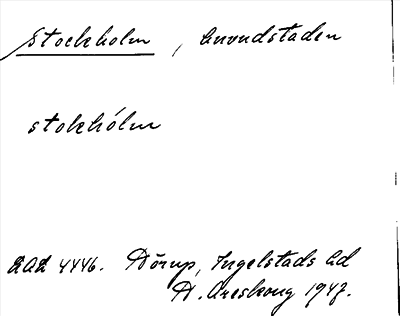 Stockholm, Grundstaden
stokhólm
LAL 4446. Hörup, Ingelstads hd
H. Areskoug 1947.